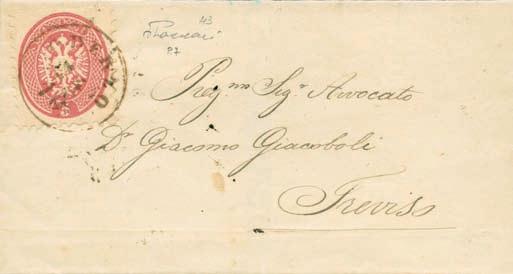 43
87
Preg.mo Sig.r Avvocato
Dr Giacomo Giacoboli
Treviso